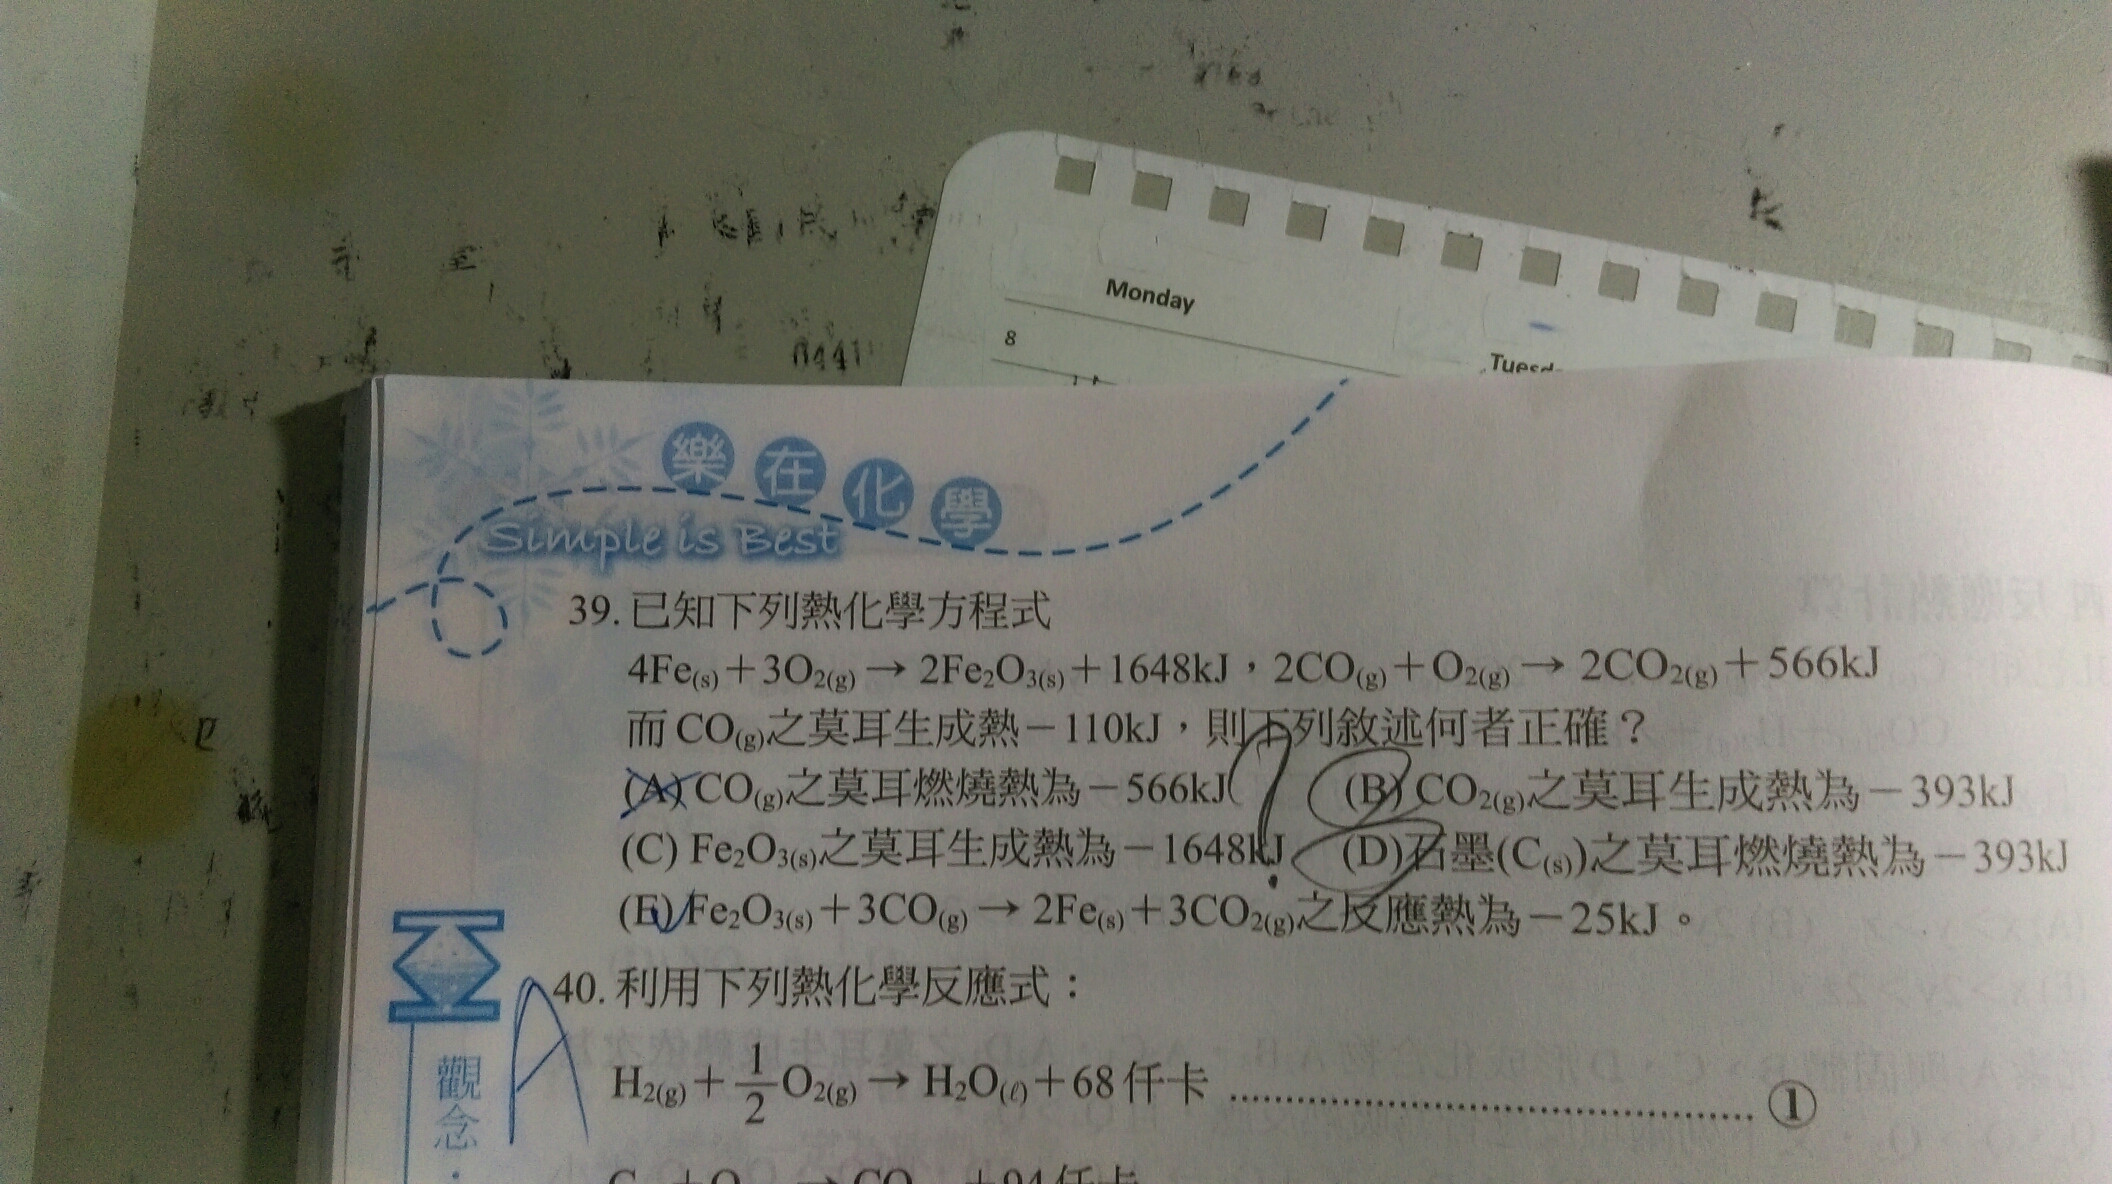 Monday
8
Tuesd
樂在化學
Simple is Best
39.已知下列熱化學方程式
4Fe(s)+3O2(g)→2Fe2O3(s)+1648kJ,2CO(g)+O2(g)→2CO2(g)+566kJ
而CO(g)之莫耳生成熱-110kJ,則下列敘述何者正確?
(A)CO(g)之莫耳燃燒熱為-566kJ (B)CO2(g)之莫耳生成熱為-393kJ
(C)Fe2O3(s)之莫耳生成熱為-1648kJ (D)石墨(C(s))之莫耳燃燒熱為-393kJ
(E)Fe2O3(s)+3CO(g)→2Fe(s)+3CO2(g)之反應熱為-25kJ。
A
40.利用下列熱化學反應式:
H2(g)+1/2O2(g)→H2O(ℓ)+68仟卡 ........ ①
觀念・